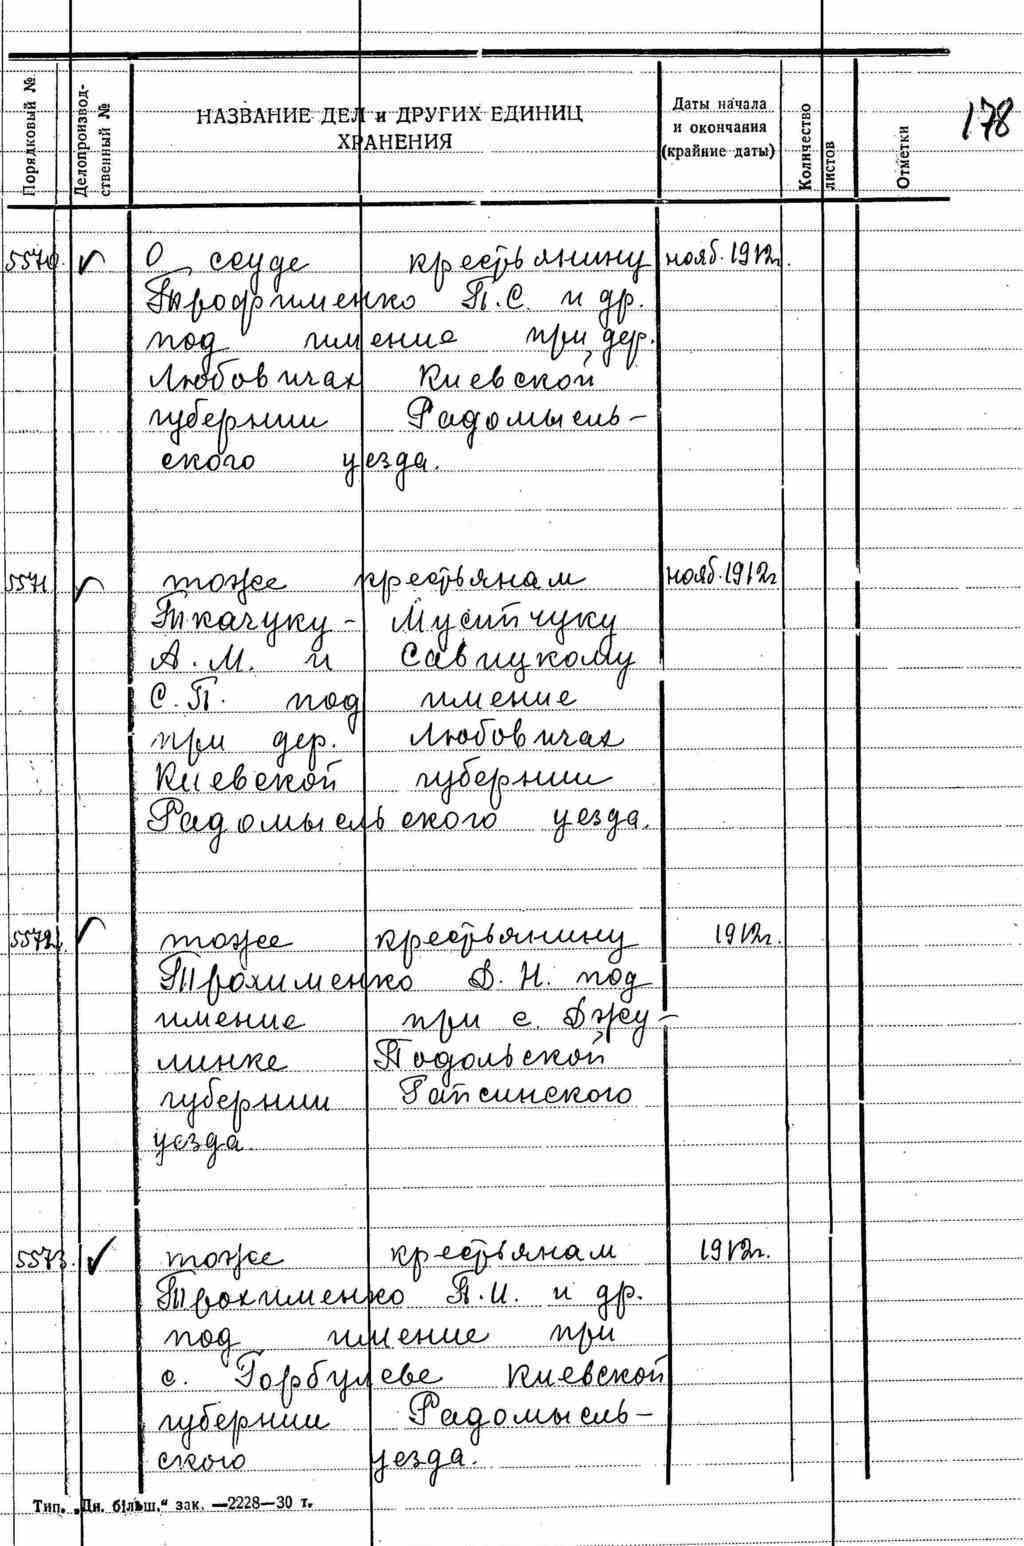 178
Порядковый №
Делопроизвод-
ственный №
НАЗВАНИЕ ДЕЛ и ДРУГИХ ЕДИНИЦ
ХРАНЕНИЯ
Даты начала
и окончания
(крайние даты)
Количество
листов
Отметки
5570. О ссуде крестьянину нояб. 1912г.
Трофименко П.С. и др.
под имение при дер.
Любовичах Киевской
губернии Радомысль-
ского уезда.
5571 тоже крестьянам нояб. 1912г
Ткачуку - Мусийчуку
А.М. и Савицкому
С.П. под имение
при дер. Любовичах
Киевской губернии
Радомысльского уезда.
5572. тоже крестьянину 1912г.
Трохименко Д.Н. под
имение при с. Джу-
линке Подольской
губернии Гайсинского
уезда.
5573. тоже крестьянам 1912г.
Трохименко П.И. и др.
под имение при
с. Горбулеве Киевской
губернии Радомысль-
ского уезда.
Тип. „Дн. більш.“ зак. —2228—30 т.